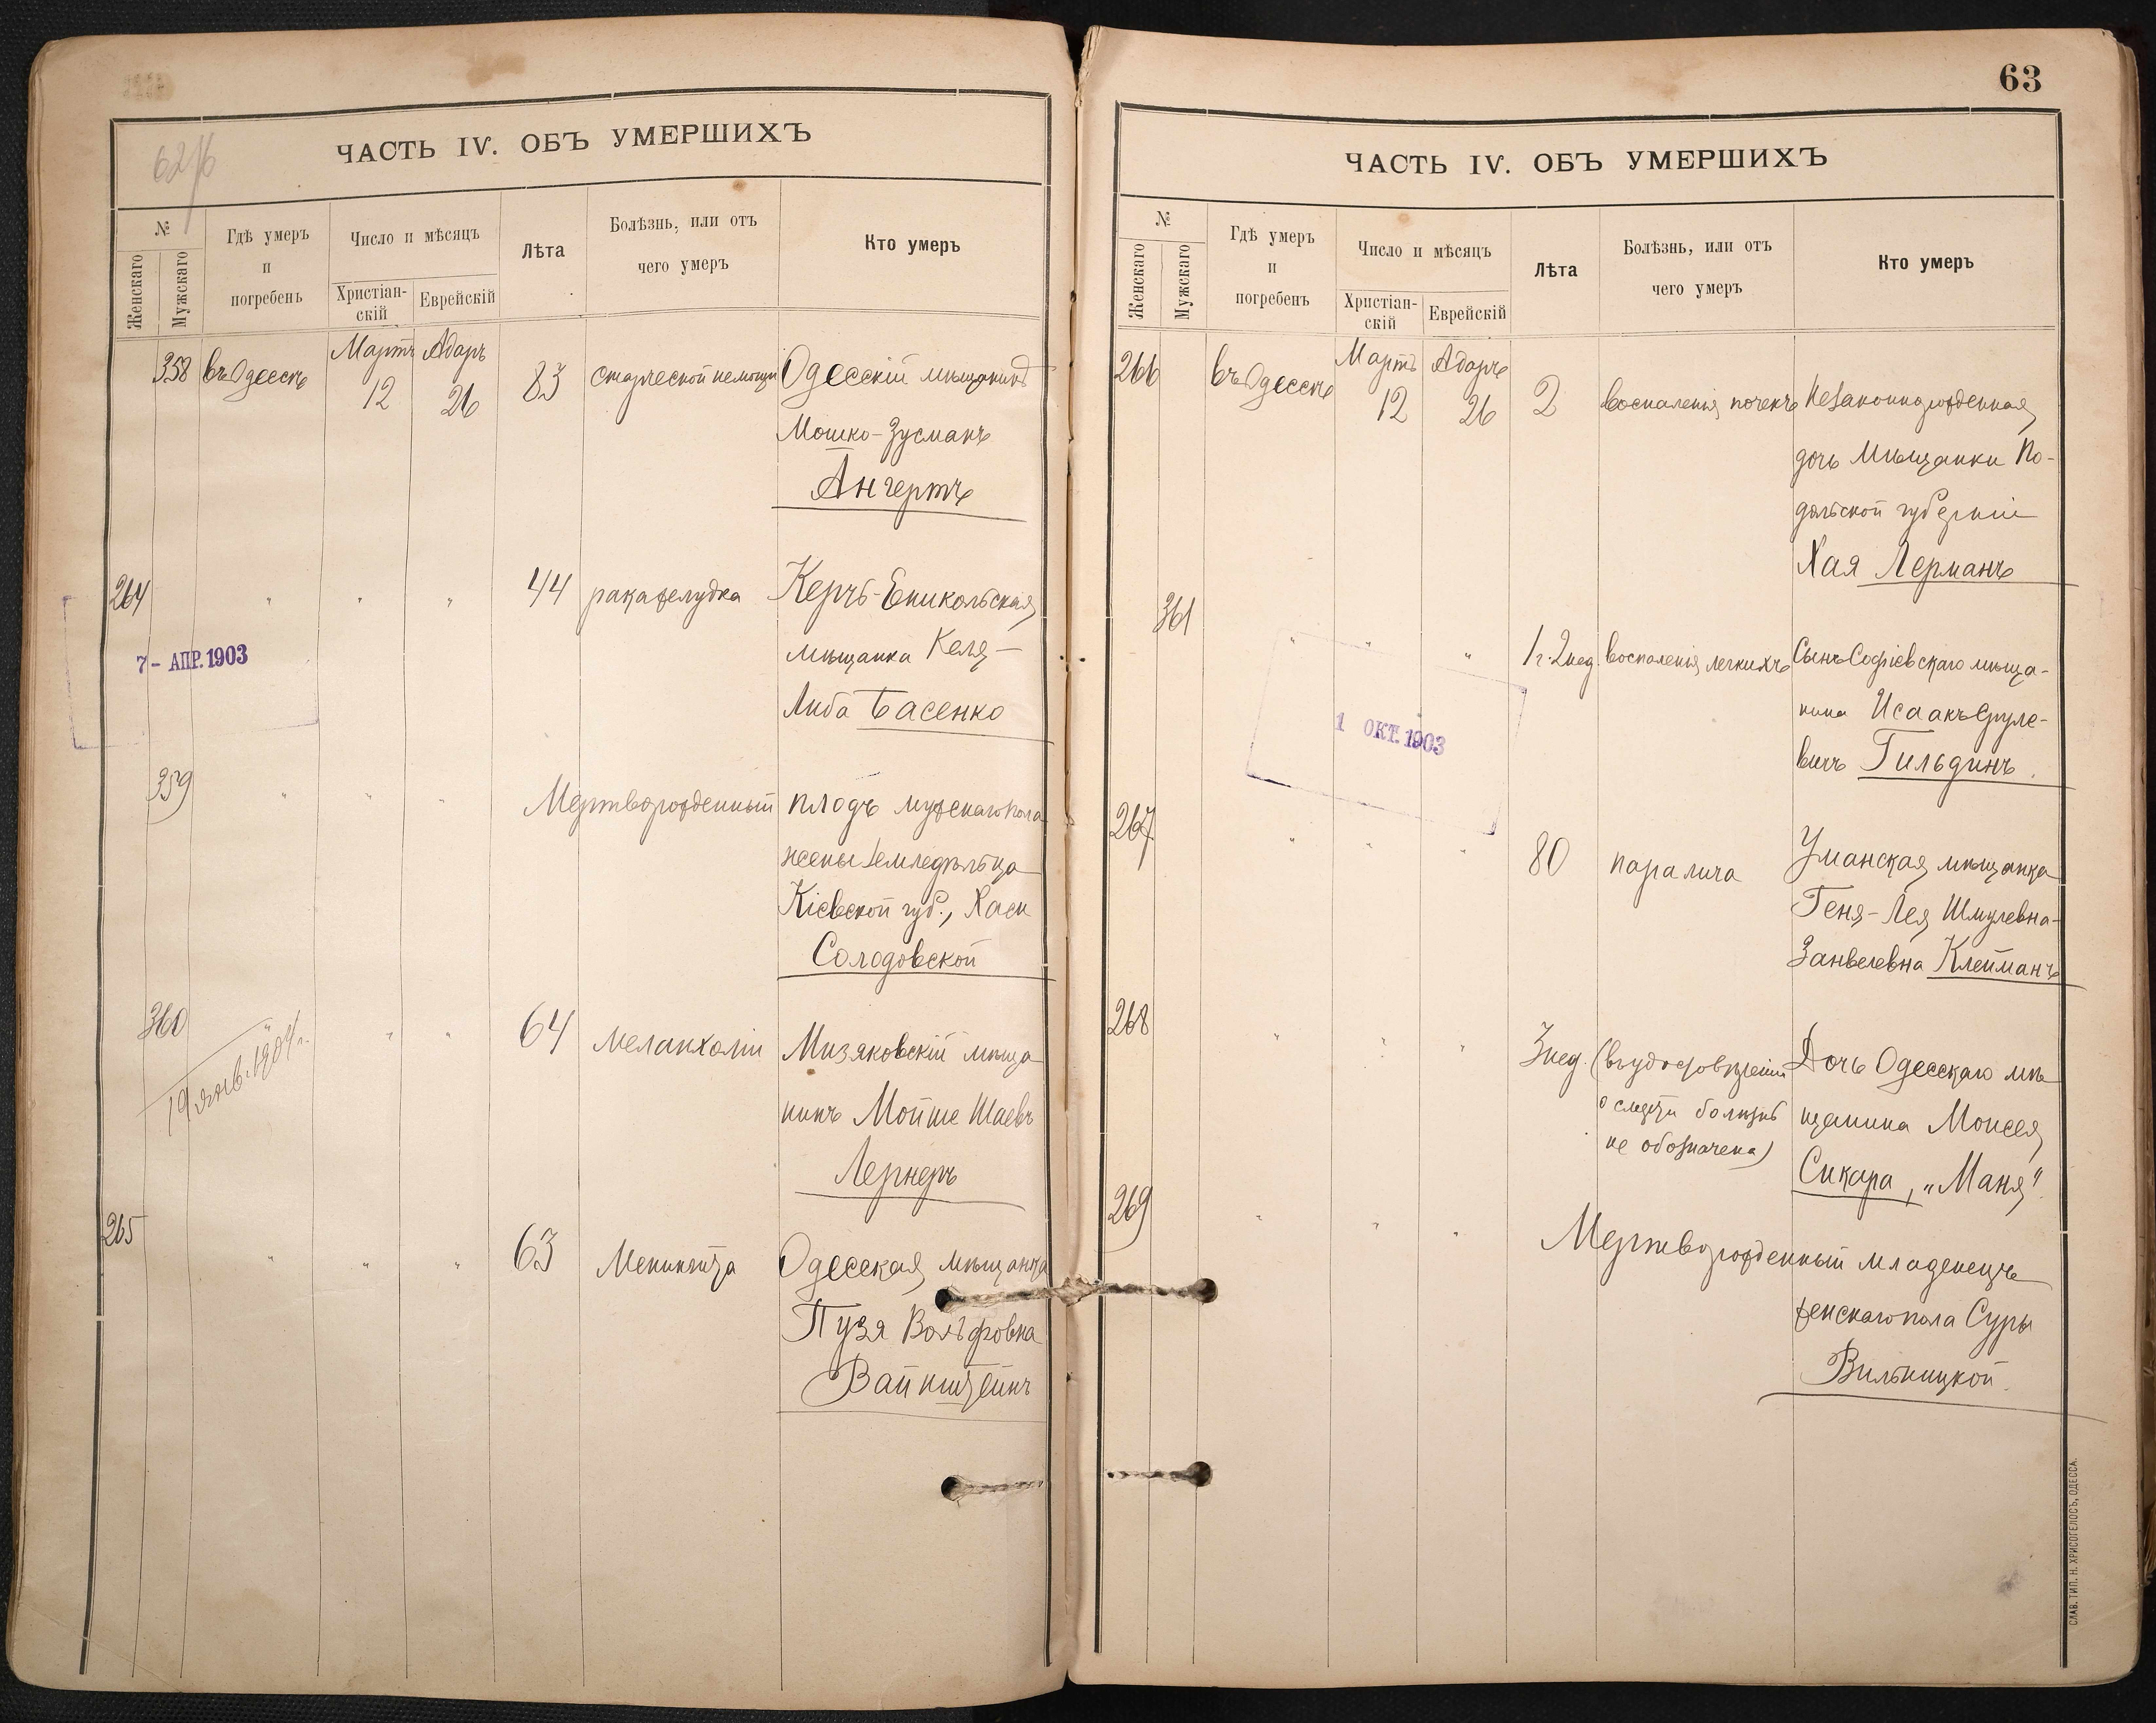 62/б
ЧАСТЬ IV. ОБЪ УМЕРШИХЪ
№
Женскаго
Мужскаго
Гдѣ умеръ
и
погребенъ
Число и мѣсяцъ
Христіан-
скій
Еврейскій
Лѣта
Болѣзнь, или отъ
чего умеръ
Кто умеръ
358 въ Одессѣ Мартъ 12 Адаръ 26 83 старческой немощи Одесскій мѣщанинъ
Мошко-Зусманъ
Ангертъ
264 " " " 44 рака желудка Керчь-Еникольская
мѣщанка Келя-
Либа Басенко
7- АПР. 1903
359 " " " Мертворожденный плодъ мужскаго пола
жены земледѣльца
Кіевской губ., Хаси
Солодовской
360 " " " 64 меланхоліи Мизяковскій мѣща-
нинъ Мойше Шаевъ
Лернеръ
19 янв. 1904 г.
265 " " " 63 Менингита Одесская мѣщанка
Пузя Вольфовна
Вайнштейнъ
63
ЧАСТЬ IV. ОБЪ УМЕРШИХЪ
№
Женскаго
Мужскаго
Гдѣ умеръ
и
погребенъ
Число и мѣсяцъ
Христіан-
скій
Еврейскій
Лѣта
Болѣзнь, или отъ
чего умеръ
Кто умеръ
266 въ Одессѣ Мартъ 12 Адаръ 26 2 воспаленія почекъ Незаконнорожденная
дочь мѣщанки По-
дольской губерніи
Хая Лерманъ
361 " " " 1 г. 2 нед. воспаленія легкихъ Сынъ Софіевскаго мѣща-
нина Исаакъ Сруле-
вичъ Гильдинъ
1 ОКТ. 1903
267 " " " 80 паралича Уманская мѣщанка
Геня-Лея Шмулевна-
Занвелевна Клейманъ
268 " " " 3 нед. (въ удостовѣреніи Дочь Одесскаго мѣ-
о смерти болѣзнь щанина Моисея
не обозначена) Сикара, „Маня"
269 " " " Мертворожденный младенецъ
женскаго пола Суры
Вильницкой
СЛАВ. ТИП. Н. ХРИСОГЕЛОСЪ, ОДЕССА.